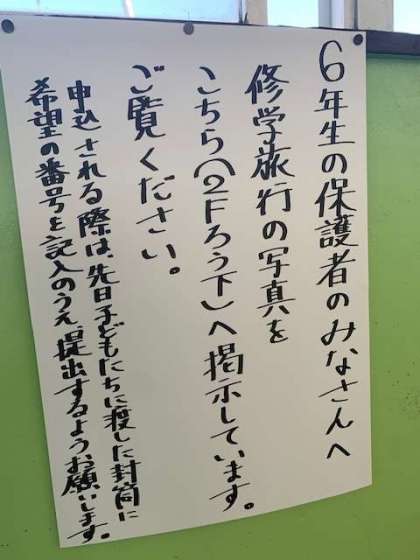 6年生の保護者のみなさんへ
修学旅行の写真を
こちら(2Fろう下)へ掲示しています。
ご覧ください。
申込される際は、先日子どもたちに渡した封筒に
希望の番号を記入のうえ、提出するようお願いします。